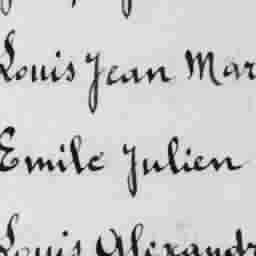 Louis Jean Mar
Emile Julien
Louis Alexandr